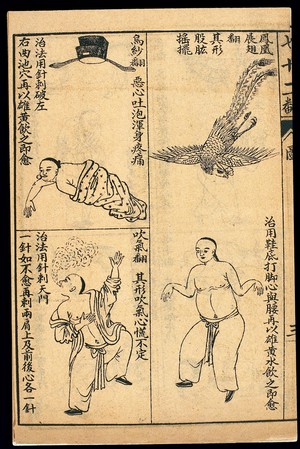 七十二翻
圖
三
鳳凰
展翅
翻
其形
股肱
搖擺
治用鞋底打脚心與腰再以雄黃水飲之即愈
烏紗翻 惡心吐泡渾身疼痛
治法用針刺破左
右曲池穴再以雄黃飲之即愈
吹氣翻 其形吹氣心慌不定
治法用針刺天門
一針如不愈再刺兩肩上及前後心各一針